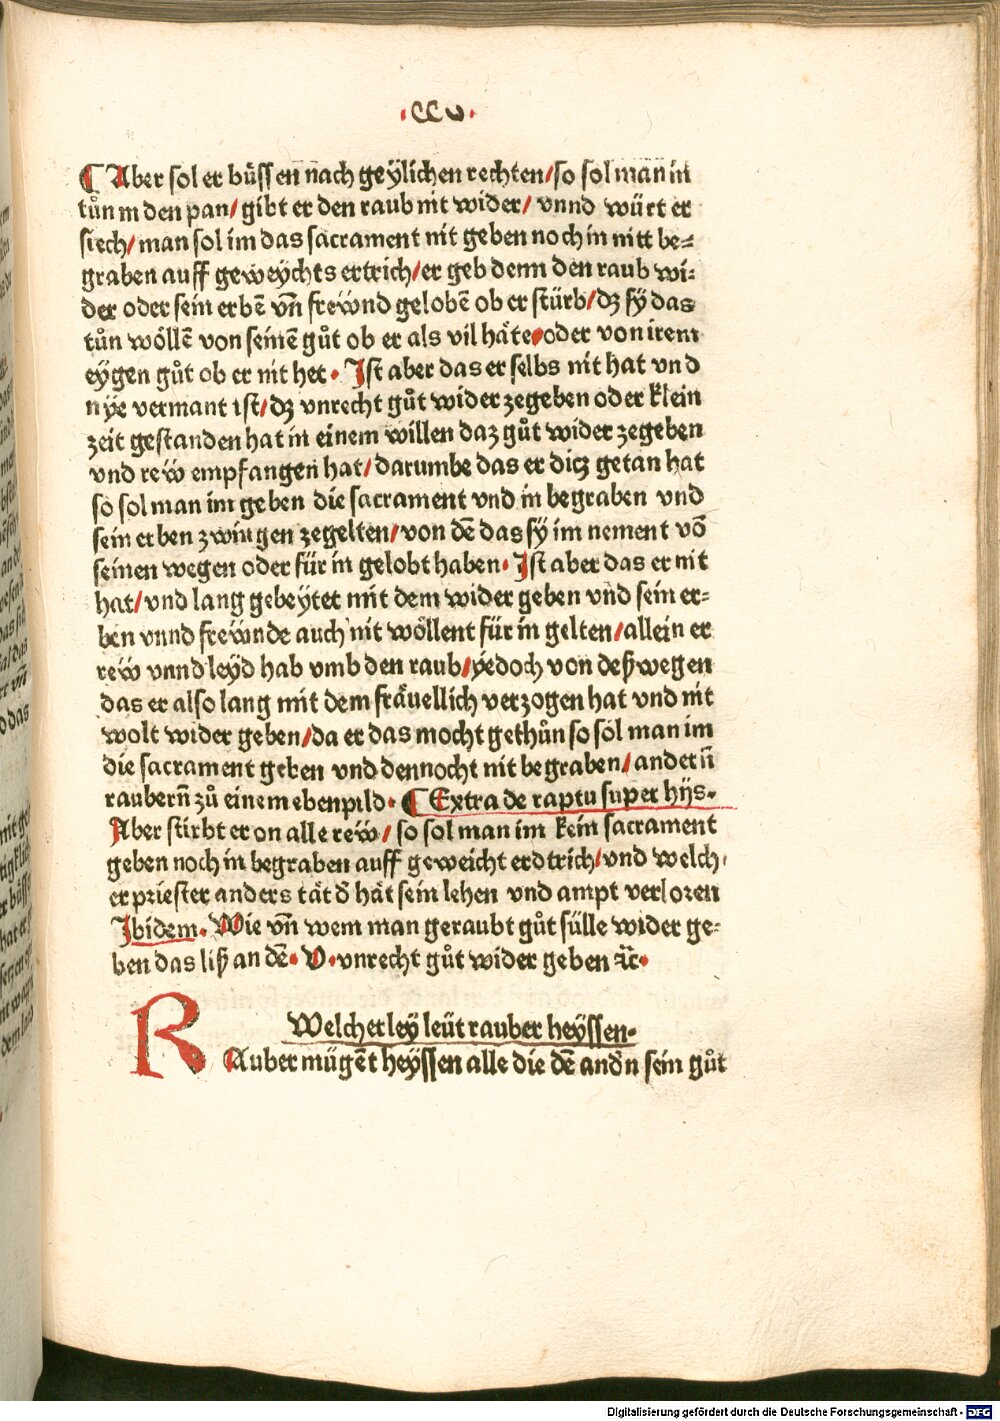 ·CCv·
¶ Aber sol er büssen nach geẏlichen rechten/so sol man in
tůn in den pan/gibt er den raub nit wider/ vnnd würt er
siech/man sol im das sacrament nit geben noch in nitt be⸗
graben auff geweẏchts ertrich/er geb denn den raub wi⸗
der oder sein erbē vn̄ freẅnd gelobē ob er stürb/dz sÿ das
tůn wöllē von seinē gůt ob er als vil häte·oder von irem
eÿgen gůt ob er nit het· Ist aber das er selbs nit hat vnd
nÿe vermant ist/dz vnrecht gůt wider zegeben oder klein
zeit gestanden hat in einem willen daz gůt wider zegeben
vnd reẅ empfangen hat/darumbe das er dicz getan hat
so sol man im geben die sacrament vnd in begraben vnd
sein erben zwingen zegelten/von dē das sÿ im nement vō
seinen wegen oder für in gelobt haben· Ist aber das er nit
hat/vnd lang gebeÿtet mit dem wider geben vnd sein er⸗
ben vnnd freẅnde auch nit wöllent für in gelten/allein er
reẅ vnnd leÿd hab vmb den raub/ÿedoch von deß wegen
das er also lang mit dem fräuellich verzogen hat vnd nit
wolt wider geben/da er das mocht gethůn so sol man im
die sacrament geben vnd dennocht nit begraben/andern̄
raubern̄ zů einem ebenpild· ¶ Extra de raptu super hijs·
Aber stirbt er on alle reẅ/ so sol man im kein sacrament
geben noch in begraben auff geweicht erdtrich/vnd welch⸗
er priester anders tät d̄ hät sein lehen vnd ampt verloren
Ibidem· Wie vn̄ wem man geraubt gůt sülle wider ge⸗
ben das liß an dē· V·vnrecht gůt wider geben ꝛc̄·
Welcherleÿ leüt rauber heÿssen·
RAuber mügēt heÿssen alle die dē andn̄ sein gůt
Digitalisierung gefördert durch die Deutsche Forschungsgemeinschaft - DFG